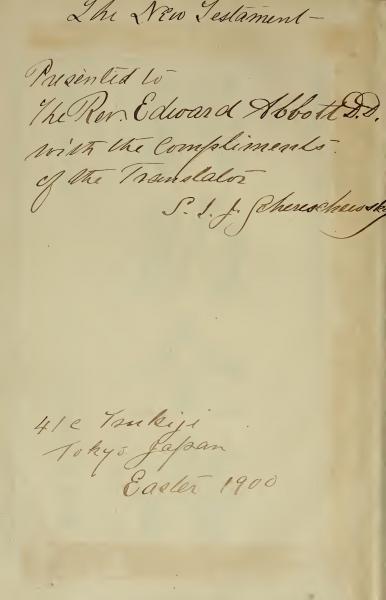 The New Testament —
Presented to
The Rev. Edward Abbott D.D.
with the Compliments
of the Translator
S. I. J. Schereschewsky
41c Tsukiji
Tokyo Japan
Easter 1900